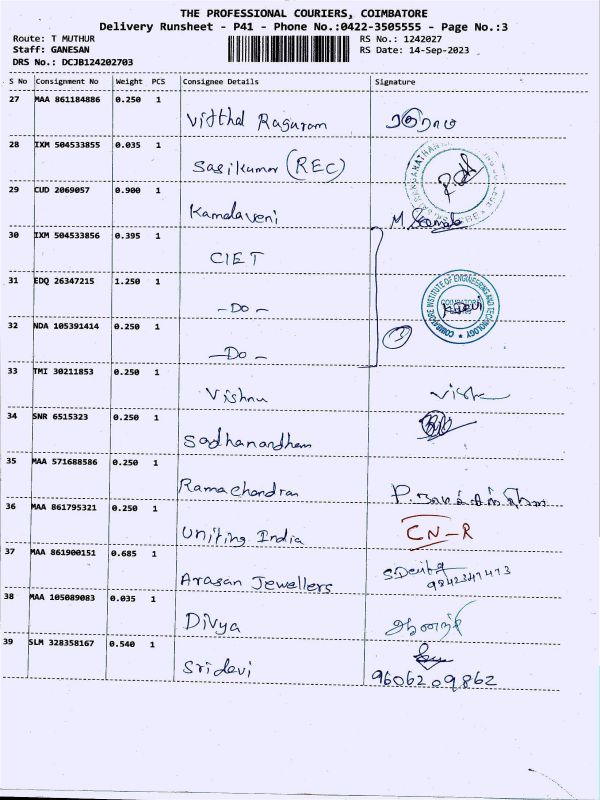 THE PROFESSIONAL COURIERS, COIMBATORE
Delivery Runsheet - P41 - Phone No.:0422-3505555 - Page No.:3
Route: T MUTHUR RS No.: 1242027
Staff: GANESAN RS Date: 14-Sep-2023
DRS No.: DCJB124202703
S No Consignment No Weight PCS Consignee Details Signature
27 MAA 861184886 0.250 1
Vitthal Raguram
28 IXM 504533855 0.035 1
Sasikumar (REC)
29 CUD 2069057 0.900 1
Kamalaveni M. Kamala
30 IXM 504533856 0.395 1
CIET
31 EDQ 26347215 1.250 1
COIMBATORE INSTITUTE OF ENGINEERING AND TECHNOLOGY
- Do - (3)
32 NDA 105391414 0.250 1
- Do -
33 TMI 30211853 0.250 1
Vishnu
34 SNR 6515323 0.250 1
Sadhanandham
35 MAA 571688586 0.250 1
Ramachandran
36 MAA 861795321 0.250 1
Uniting India CN-R
37 MAA 861900151 0.685 1
Arasan Jewellers 9842341413
38 MAA 105089083 0.035 1
Divya
39 SLM 328358167 0.540 1
Sridevi 9606209862